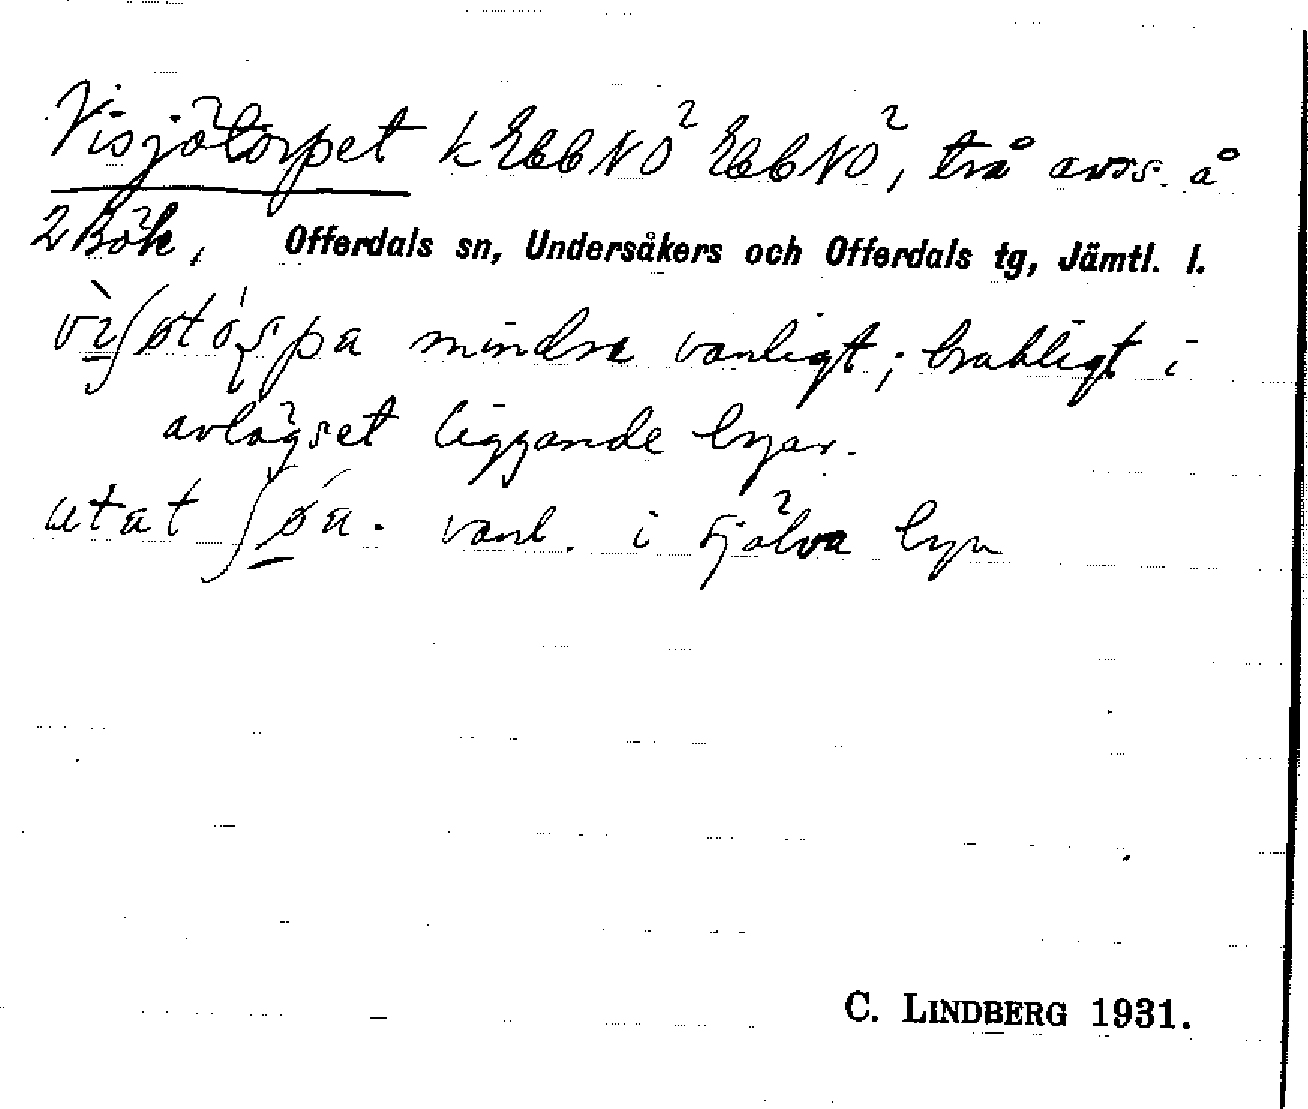 Visjötorpet k EbbNO² EbbNO², trå avs. å
2 Bök, Offerdals sn, Undersåkers och Offerdals tg, Jämtl. l.
vı̀ʃøtóṣpa mindre vanligt; brukligt i
avlägset liggande byar.
utat ʃǿa. vanl. i själva byn
C. LINDBERG 1931.